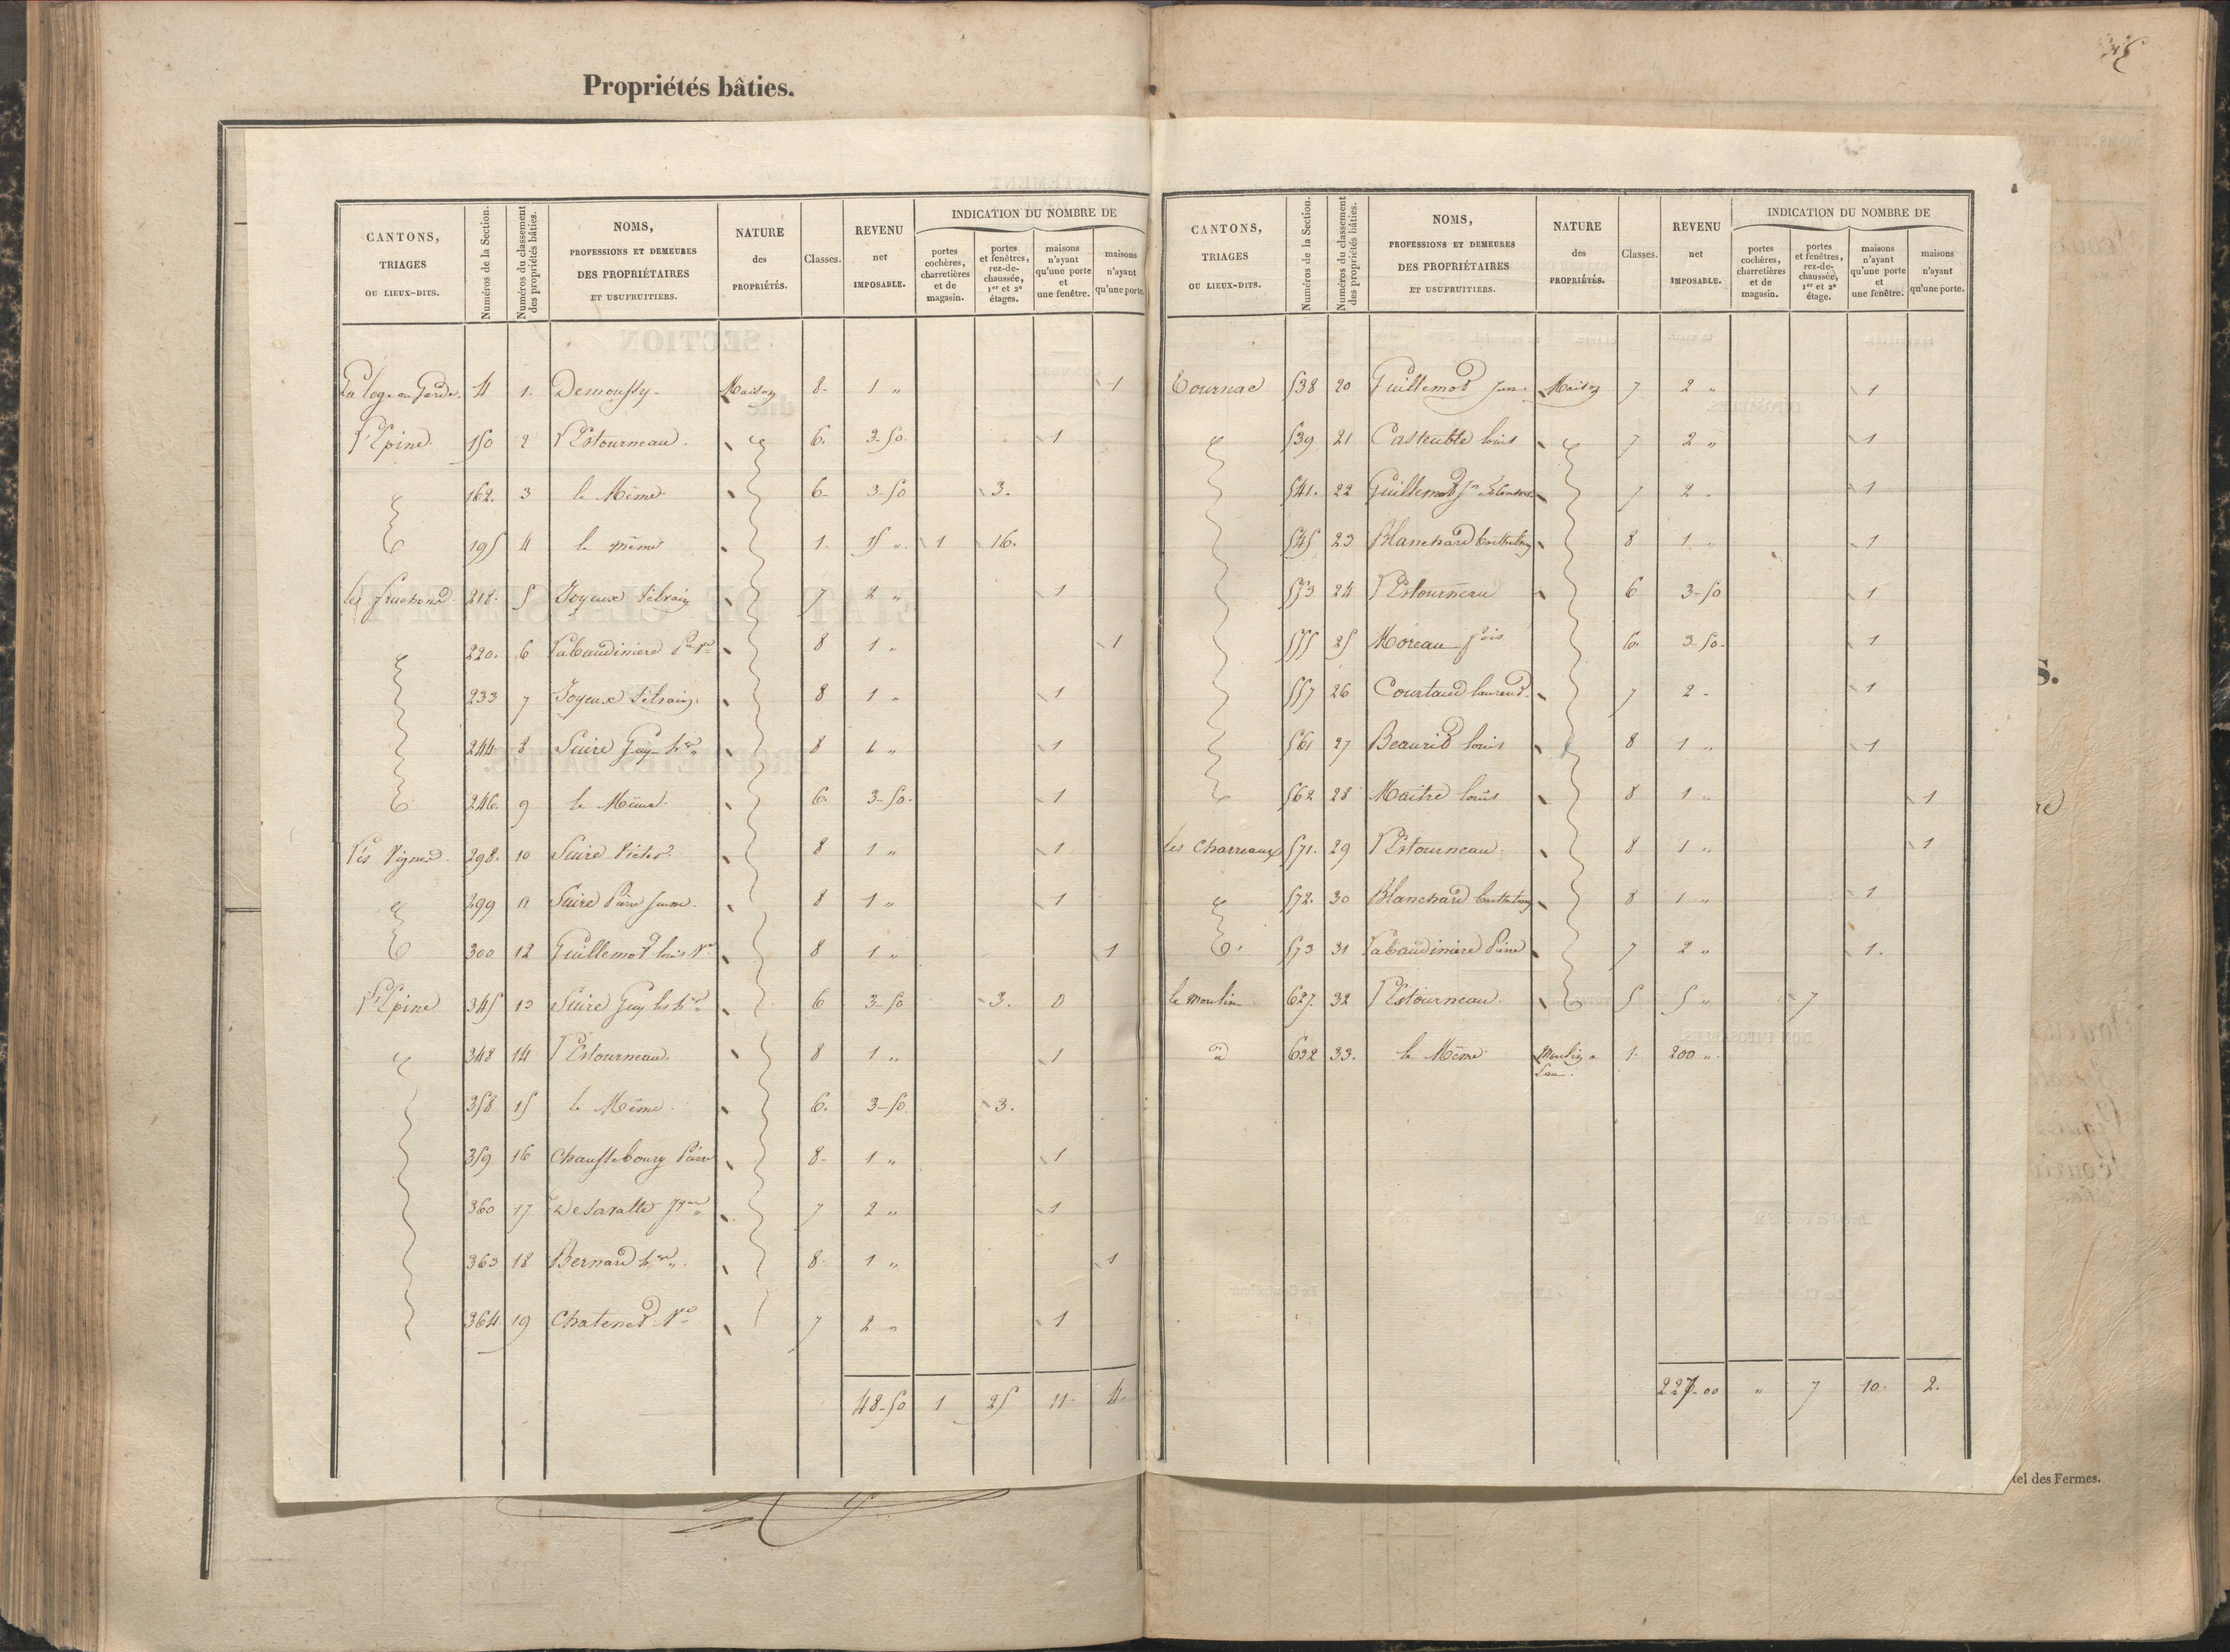 Propriétés bâties.
CANTONS, TRIAGES OU LIEUX-DITS. | Numéros de la Section. | Numéros du classement des propriétés bâties. | NOMS, PROFESSIONS ET DEMEURES DES PROPRIÉTAIRES ET USUFRUITIERS. | NATURE des PROPRIÉTÉS. | Classes. | REVENU net IMPOSABLE. | INDICATION DU NOMBRE DE | portes cochères, charretières et de magasin. | portes et fenêtres, rez-de-chaussée, 1er et 2e étages. | maisons n'ayant qu'une porte et une fenêtre. | maisons n'ayant qu'une porte.
La loge au Garde. 4 1. Demoussy Maison 8. 1 " 1
l'Epine. 150 2 l'Estourneau. 6. 3-50. 1
162. 3 le Même 6. 3-50 3.
195 4 le même 1. 15 " 1 16.
les 218. 5 Joyeux Silvain 7 2 " 1
220. 6 Labaudiniere 8 1 " 1
233 7 Joyeux Silvain 8 1 " 1
244 8 Suire Guy hrs 8 1 " 1
246. 9 le Même. 6. 3-50. 1
les Vignes 298. 10 Suire Victor 8 1 " 1
299 11 Suire Pierre jeune. 8 1 " 1
300 12 Guillemot louis Ve 8 1 " 1
l'Epine 345 13 Suire Guy les hrs 6 3-50 3. 0
348 14 l'Estourneau. 8 1 " 1
358 15 le Même. 6. 3-50. 3.
359 16 Chaussebourg Pierre 8. 1 " 1
360 17 7 2 " 1
363 18 Bernard hrs. 8. 1 " 1
364. 19 Chatenet Ve 7 2 " 1
48-50 1 25 11. 4.
CANTONS, TRIAGES OU LIEUX-DITS. | Numéros de la Section. | Numéros du classement des propriétés bâties. | NOMS, PROFESSIONS ET DEMEURES DES PROPRIÉTAIRES ET USUFRUITIERS. | NATURE des PROPRIÉTÉS. | Classes. | REVENU net IMPOSABLE. | INDICATION DU NOMBRE DE | portes cochères, charretières et de magasin. | portes et fenêtres, rez-de-chaussée, 1er et 2e étage. | maisons n'ayant qu'une porte et une fenêtre. | maisons n'ayant qu'une porte.
Tournae 538 20 Guillemot Maison 7 2 " 1
539 21 louis 7 2 " 1
541. 22 Guillemot 7 2 " 1
545 23 Blanchard 8 1 " 1
553 24 l'Estourneau 6 3-50 1
555 25 Moreau fois 6. 3-50. 1
557 26 Courtaud laurent 7 2 " 1
561 27 louis 8 1 " 1
562 28 Maitre louis 8 1 " 1
les Charreaux 571. 29 l'Estourneau. 8 1 " 1
572. 30 Blanchard 8 1 " 1
573 31 Labaudiniere Pierre 7 2 " 1.
le moulin 627. 32 l'Estourneau. 5 5 " 7
d 632 33. le Même Moulin à Eau. 1. 200 "
227-00 " 7 10. 2.
tel des Fermes.